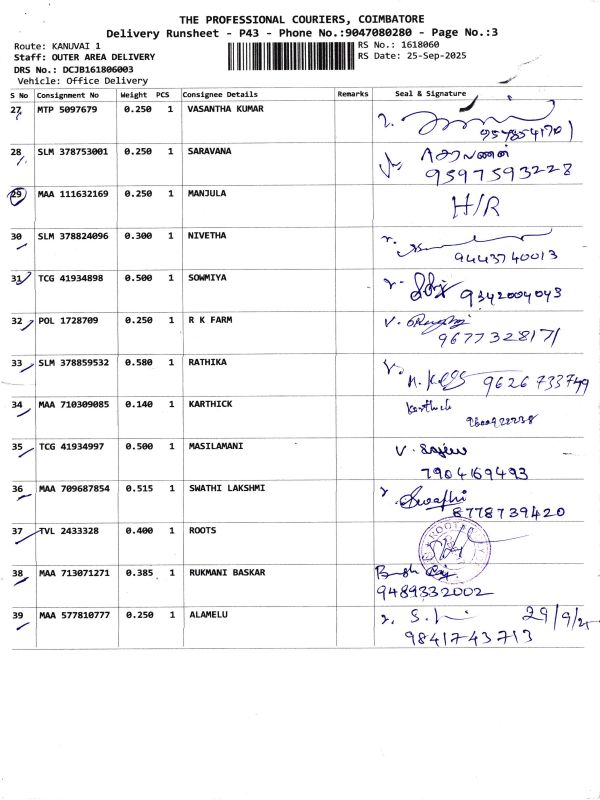 THE PROFESSIONAL COURIERS, COIMBATORE
Delivery Runsheet - P43 - Phone No.:9047080280 - Page No.:3
Route: KANUVAI 1
RS No.: 1618060
Staff: OUTER AREA DELIVERY
RS Date: 25-Sep-2025
DRS No.: DCJB161806003
Vehicle: Office Delivery
S No Consignment No Weight PCS Consignee Details Remarks Seal & Signature
27 MTP 5097679 0.250 1 VASANTHA KUMAR
28 SLM 378753001 0.250 1 SARAVANA சரவணன்
9597593228
29 MAA 111632169 0.250 1 MANJULA H/R
30 SLM 378824096 0.300 1 NIVETHA
9443740013
31 TCG 41934898 0.500 1 SOWMIYA 9342004043
32 POL 1728709 0.250 1 R K FARM
9677328171
33 SLM 378859532 0.580 1 RATHIKA
9626733749
34 MAA 710309085 0.140 1 KARTHICK Karthick
35 TCG 41934997 0.500 1 MASILAMANI
7904169493
36 MAA 709687854 0.515 1 SWATHI LAKSHMI Swathi
8778739420
37 TVL 2433328 0.400 1 ROOTS
38 MAA 713071271 0.385 1 RUKMANI BASKAR
9489332002
39 MAA 577810777 0.250 1 ALAMELU 29/9/25
9841743713